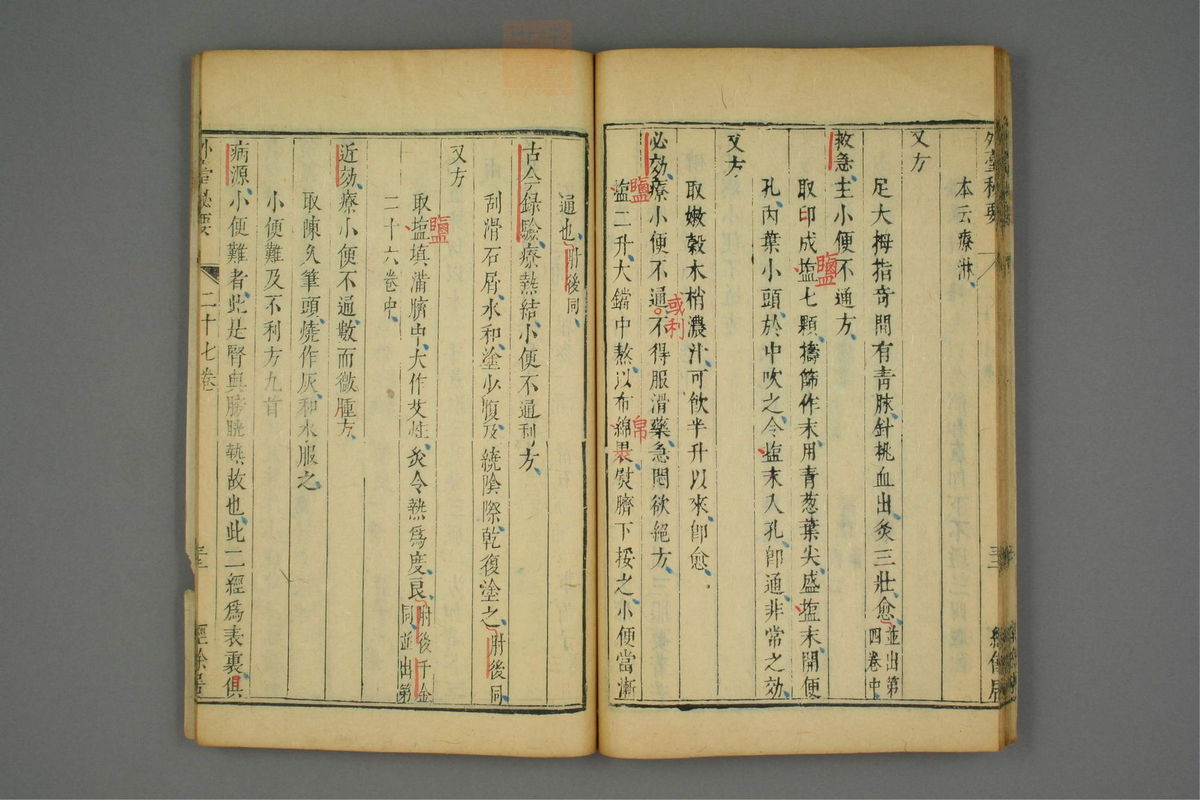 外臺秘要
本云療淋
又方
足大拇指奇間有青脉針挑血出灸三壯愈並出第四卷中
救急主小便不通方
取印成塩七顆擣篩作末用青葱葉尖盛塩末開便
鹽
孔内葉小頭於中吹之令塩末入孔即通非常之効
又方
取嫩穀木梢濃汁可飲半升以來即愈
或利
必効療小便不通不得服滑藥急悶欲絕方
鹽
塩二升大鐺中熬以布綿裹熨臍下挼之小便當漸
帛
通也肘後同
古今録驗療熱結小便不通利方
刮滑石屑水和塗少腹及繞陰際乾復塗之肘後同
又方
鹽
取塩填滿臍中大作艾炷灸令熱爲度良肘後千金同並出第
二十六卷中
近効療小便不通數而微腫方
取陳久筆頭燒作灰和水服之
小便難及不利方九首
病源小便難者此是腎與膀胱熱故也此二經爲表裏俱
外臺秘要 二十七卷 經餘居